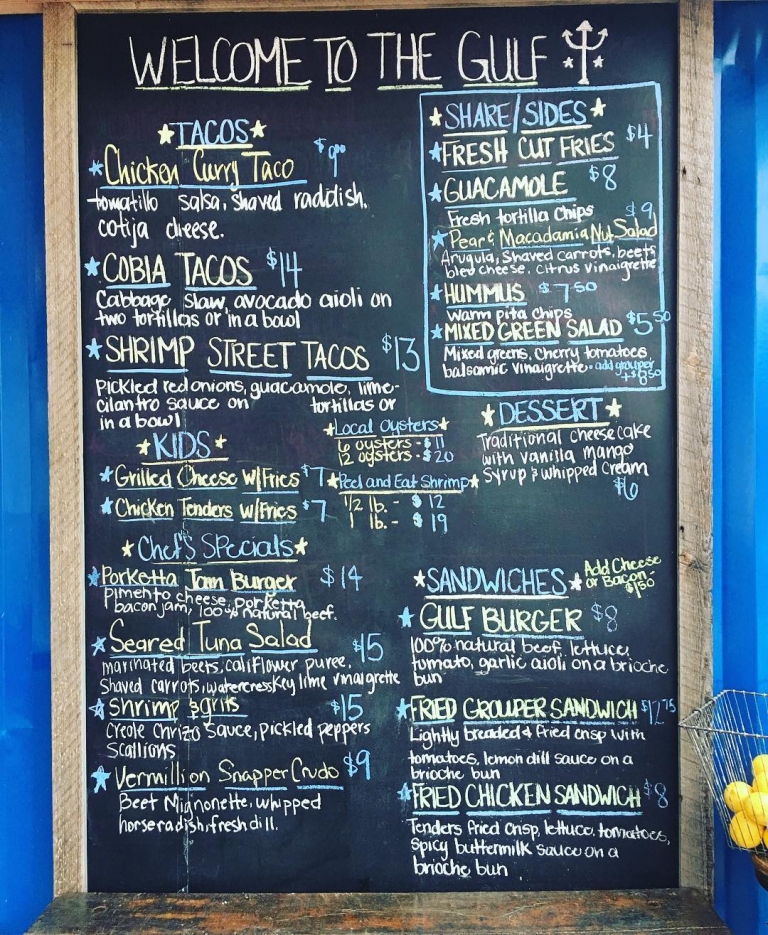 WELCOME TO THE GULF
TACOS
Chicken Curry Taco $9.00
tomatillo salsa, shaved raddish,
cotija cheese.
COBIA TACOS $14
Cabbage slaw, avocado aioli on
two tortillas or in a bowl
SHRIMP STREET TACOS $13
pickled red onions, guacamole, lime-
cilantro sauce on tortillas or
in a bowl
KIDS
Grilled Cheese w/Fries $7
Chicken Tenders w/Fries $7
Local Oysters
6 oysters - $11
12 oysters - $20
Peel and Eat Shrimp
1/2 lb. - $12
1 lb. - $19
Chef's Specials
Porketta Jam Burger $14
pimento cheese, porketta
bacon jam, 100% natural beef.
Seared Tuna Salad $15
marinated beets, califlower puree,
Shaved carrots, watercress, Key lime vinaigrette
Shrimp & grits $15
Creole Chrizo Sauce, pickled peppers
Scallions
Vermillion Snapper Crudo $9
Beet Mignonette, whipped
horseradish, fresh dill.
SHARE/SIDES
FRESH CUT FRIES $4
GUACAMOLE $8
Fresh tortilla Chips
Pear & Macadamia Nut Salad $9
Arugula, Shaved carrots, beets
bleu cheese, citrus vinaigrette
HUMMUS $7.50
warm pita chips
MIXED GREEN SALAD $5.50
Mixed greens, Cherry tomatoes
balsamic vinaigrette. add grouper
+$8.50
DESSERT
Traditional cheesecake
with vanilla mango
syrup & whipped cream
$6
SANDWICHES
Add Cheese
or Bacon-
$1.50
GULF BURGER $8
100% natural beef, lettuce,
tomato, garlic aioli on a brioche
bun
FRIED GROUPER SANDWICH $12.75
Lightly breaded & fried crisp with
tomatoes, lemon dill sauce on a
brioche bun
FRIED CHICKEN SANDWICH $8
Tenders fried crisp, lettuce, tomatoes,
spicy buttermilk sauce on a
brioche bun